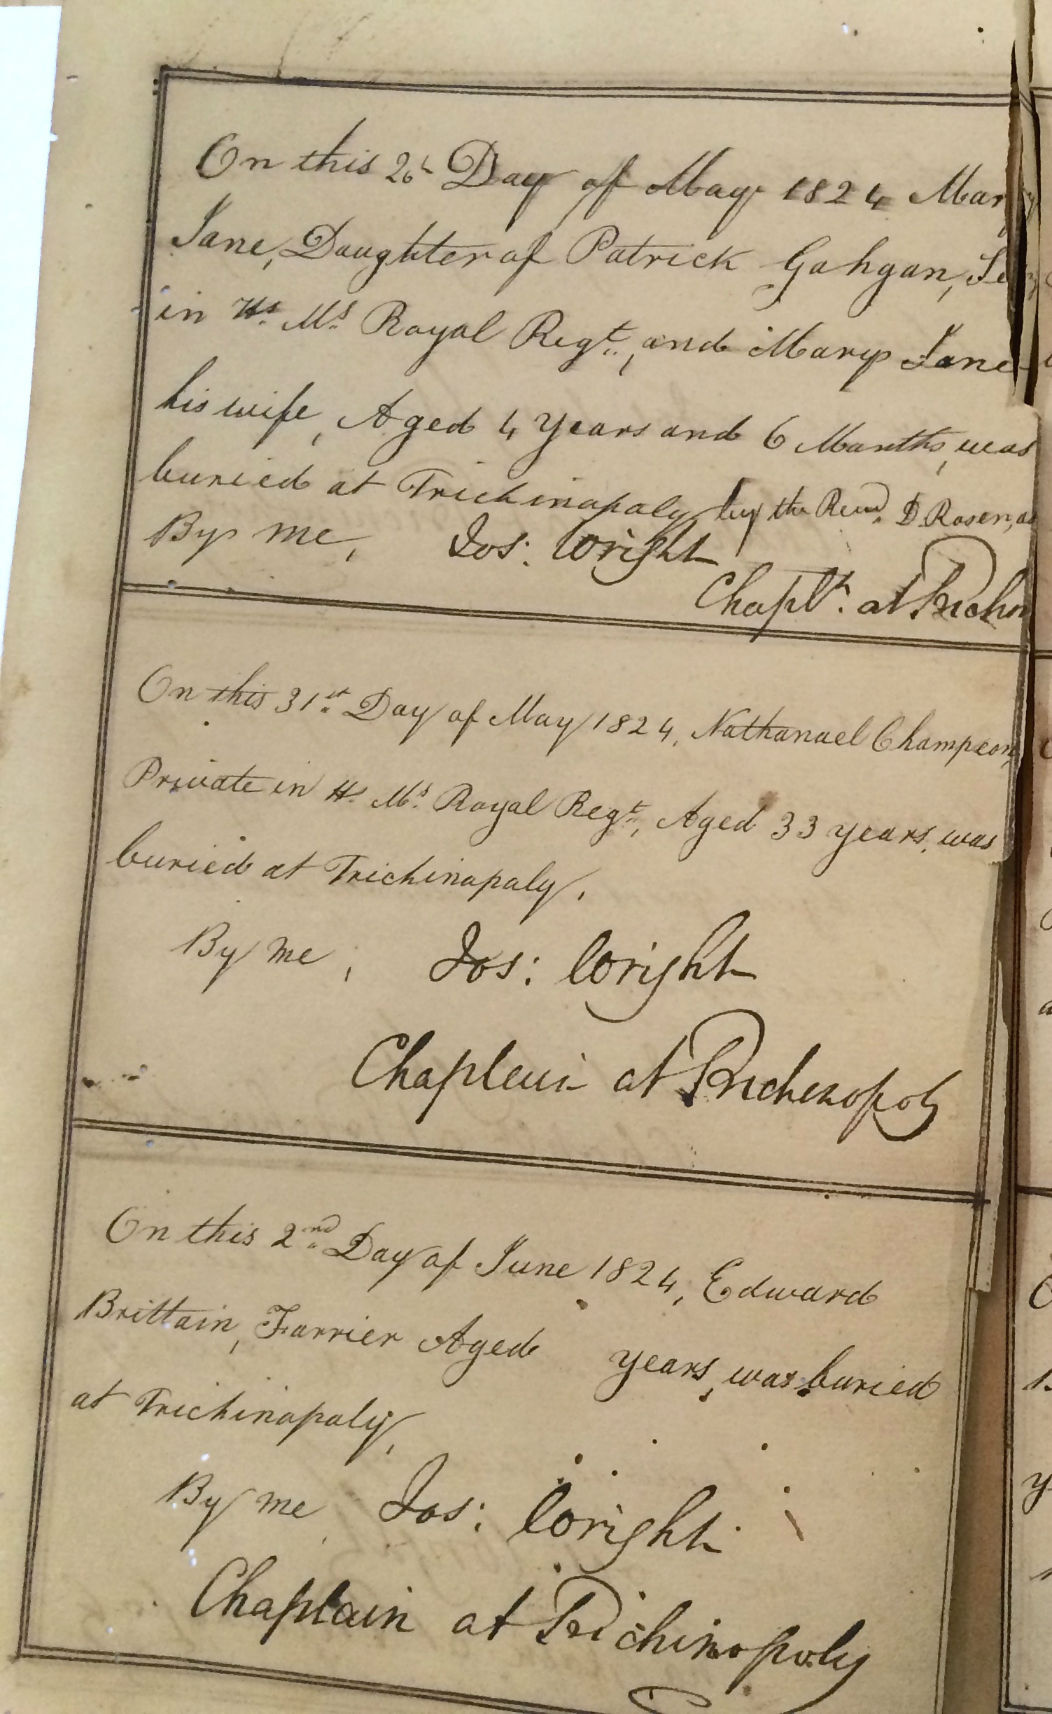 On this 26th Day of May 1824 Mary
Jane, Daughter of Patrick Gahgan,
in Hs. Ms. Royal Regt., and Mary Jane
his wife, Aged 4 years and 6 Months, was
buried at Trichinopaly by the Revd. D. Rosen,
By me, Jos: Wright
Chapln. at Trichin
On this 31st Day of May 1824, Nathanael Champeon,
Private in H. Ms. Royal Regt., Aged 33 years, was
buried at Trichinopaly.
By me, Jos: Wright
Chaplain at Trichinopoly
On this 2nd Day of June 1824, Edward
Brittain, Farrier Aged years, was buried
at Trichinopaly,
By me Jos: Wright
Chaplain at Trichinopoly